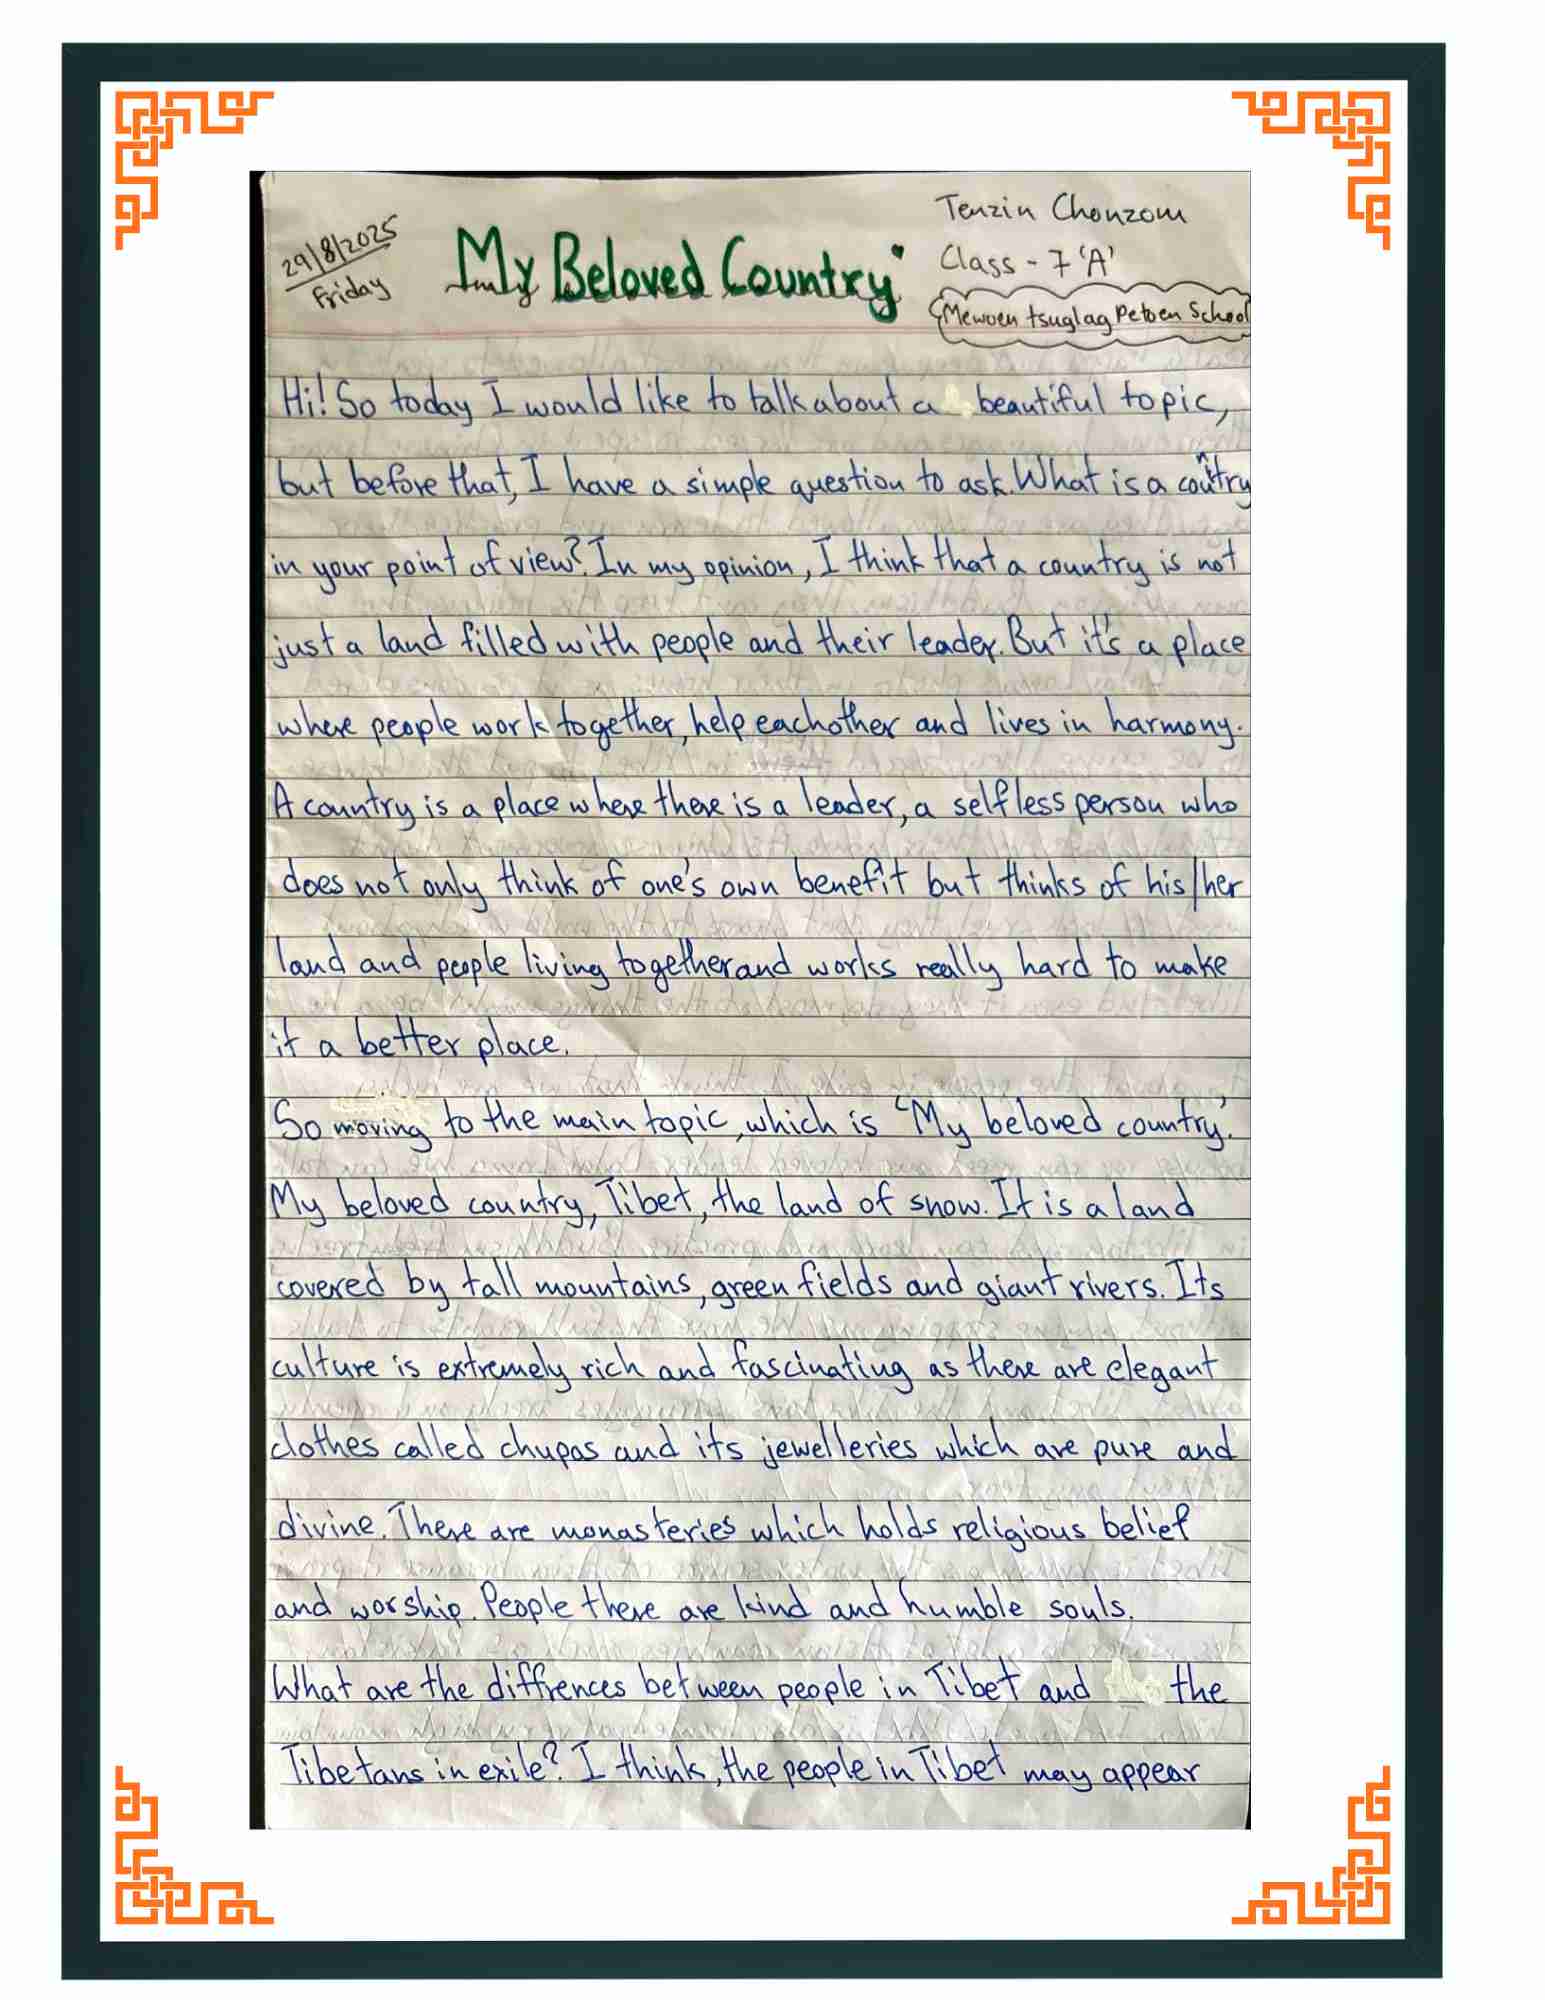 29/8/2025
Friday
My Beloved Country
Tenzin Chonzom
Class - 7 'A'
Mewoen tsuglag Petoen School
Hi! So today I would like to talk about a beautiful topic,
but before that, I have a simple question to ask. What is a country
in your point of view? In my opinion, I think that a country is not
just a land filled with people and their leader. But it's a place
where people work together, help eachother and lives in harmony.
A country is a place where there is a leader, a selfless person who
does not only think of one's own benefit but thinks of his/her
land and people living together and works really hard to make
it a better place.
So moving to the main topic, which is 'My beloved country'.
My beloved country, Tibet, the land of snow. It is a land
covered by tall mountains, green fields and giant rivers. Its
culture is extremely rich and fascinating as there are elegant
clothes called chupas and its jewelleries which are pure and
divine. There are monasteries which holds religious belief
and worship. People there are kind and humble souls.
What are the diffrences between people in Tibet and the
Tibetans in exile? I think, the people in Tibet may appear